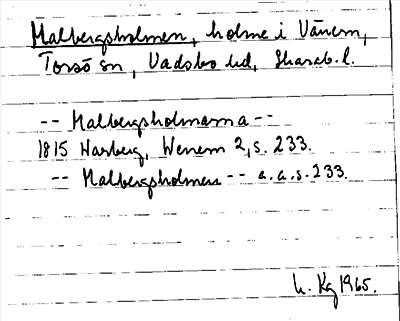 Malbergsholmen, holme i Vänern,
Torsö sn, Vadsbo hd, Skarab. l.
-- Malbergsholmarna --
1815 Warberg, Wenern 2, s. 233.
-- Malbergsholmen -- a.a.s. 233.
Kg 1965.